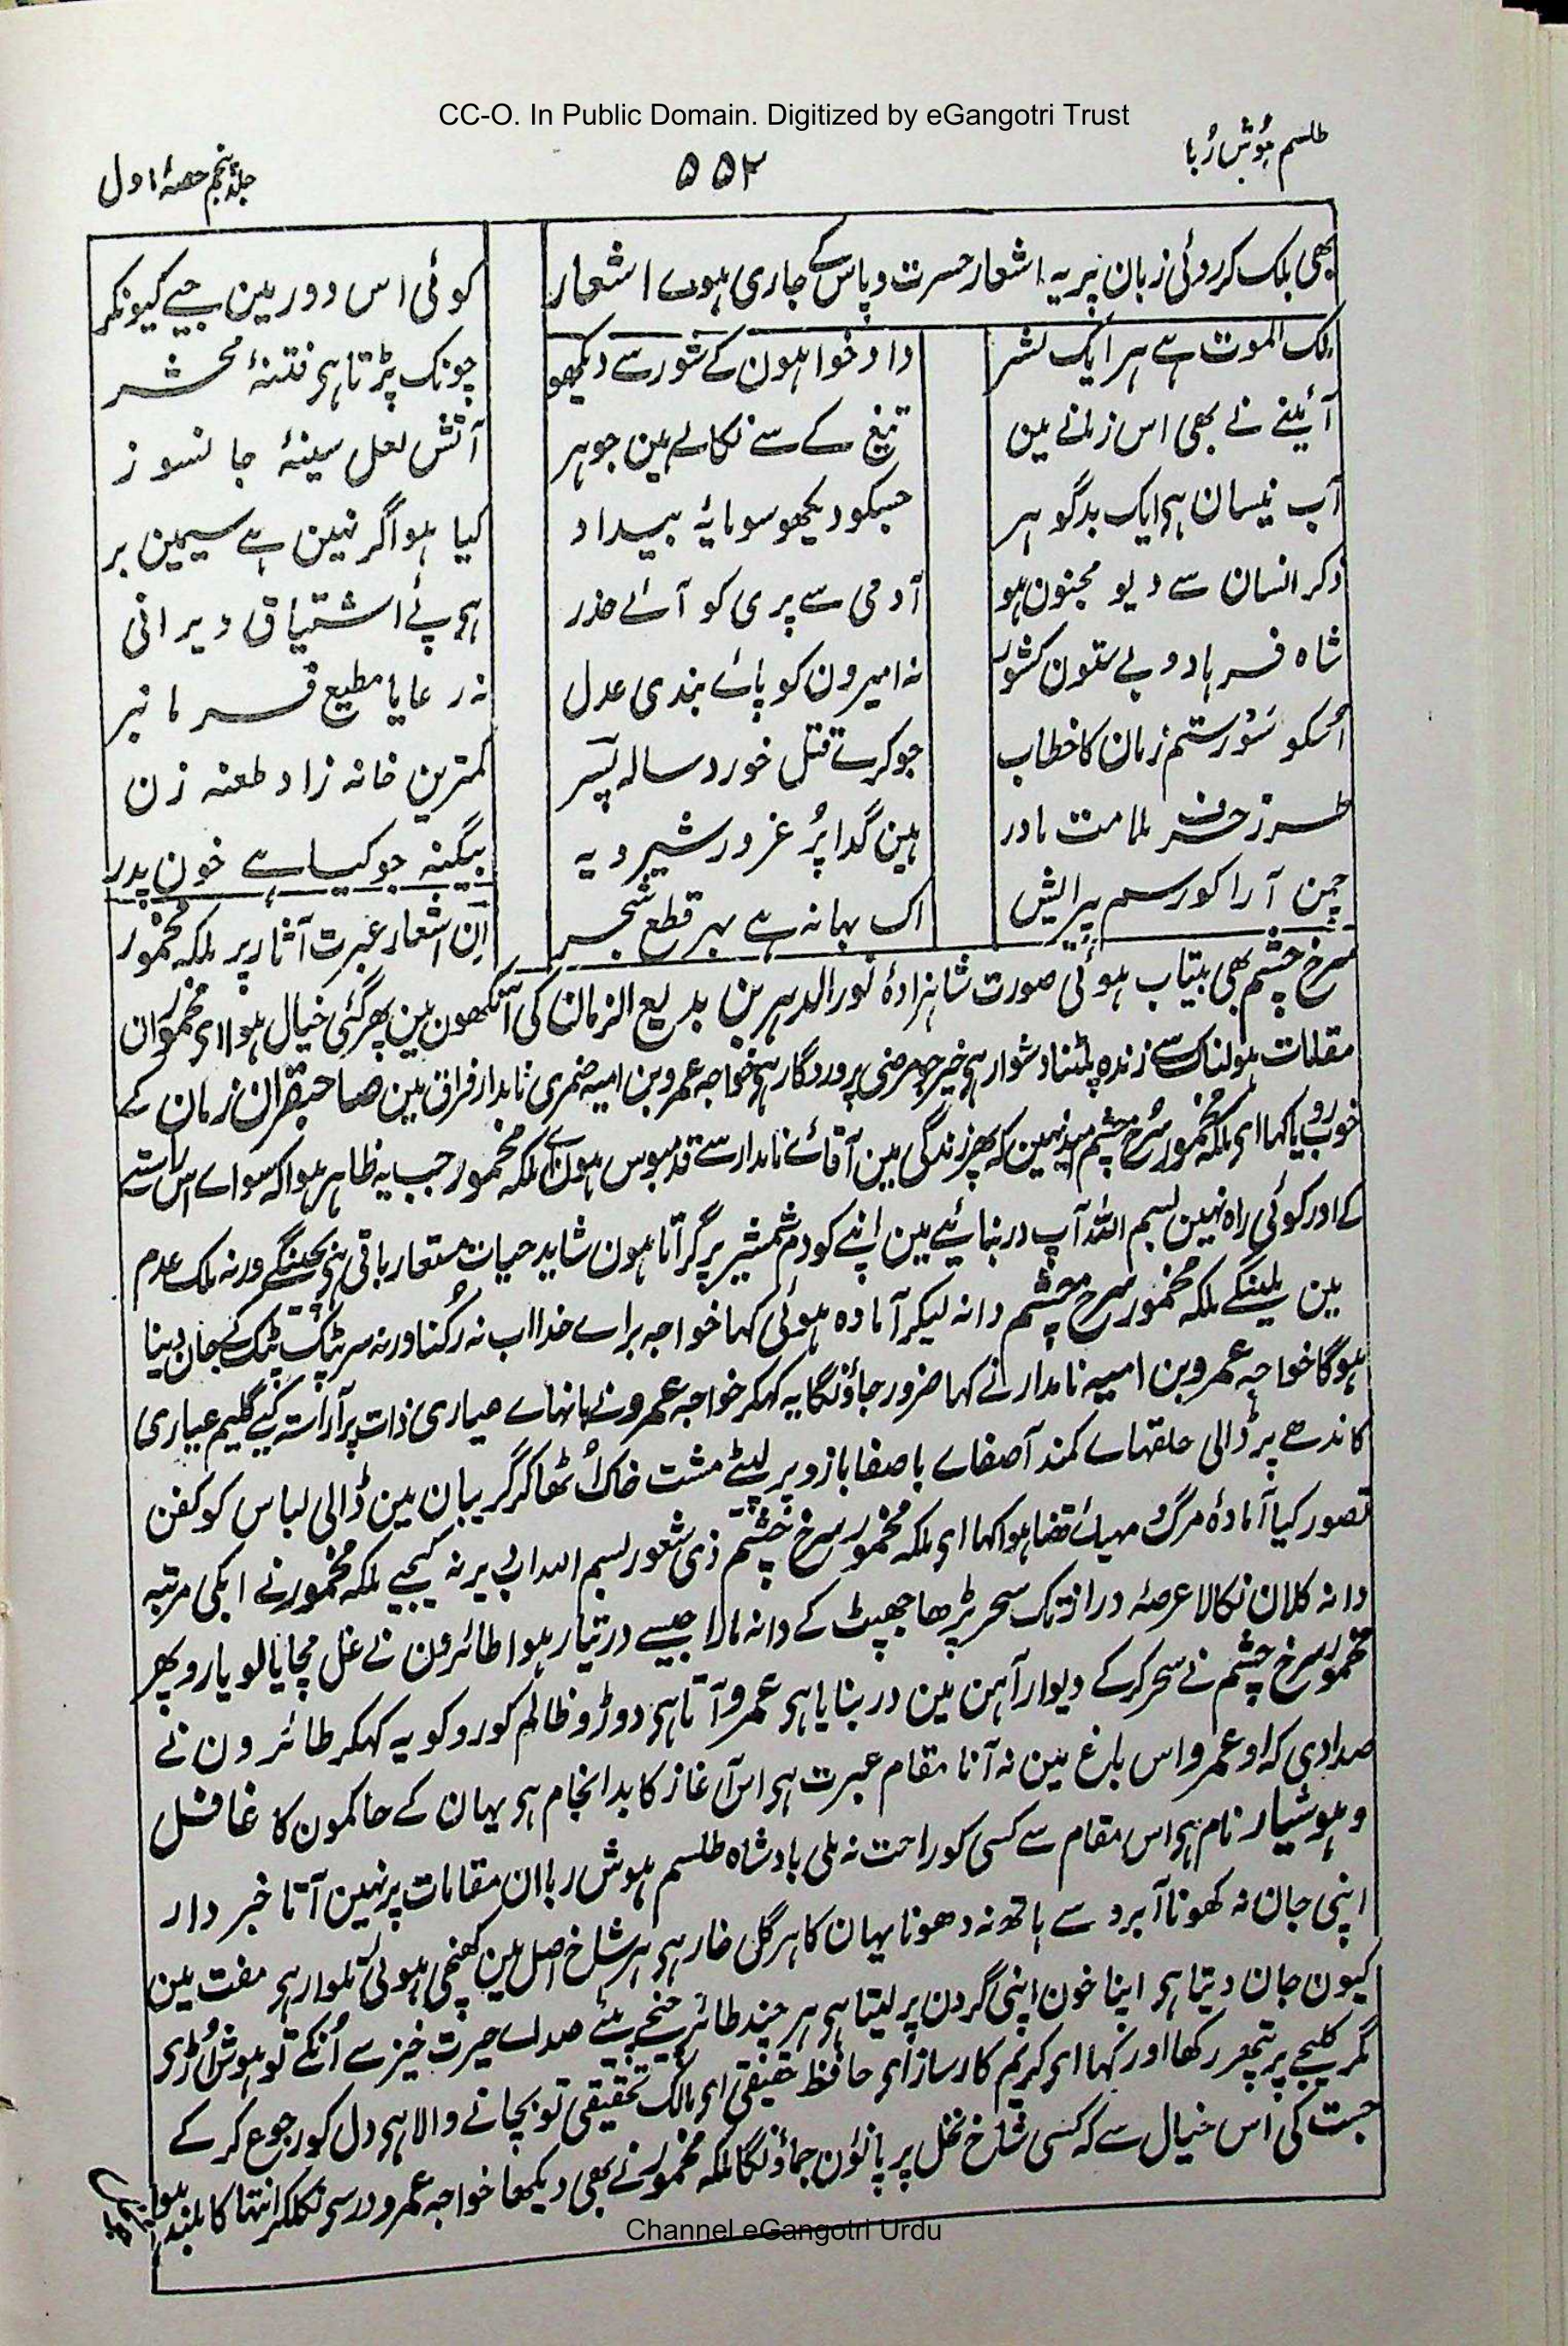 CC-O. In Public Domain. Digitized by eGangotri Trust
طلسم ہوش رُبا
۵۵۲
جلد پنجم حصۂ اول
بھی بلک کر روئی زبان پر یہ اشعار حسرت و یاس کے جاری ہوے اشعار
کوئی اس دور مین جیے کیونکر
ملک الموت ہے ہر ایک بشر
داد خواہون کے شور سے دیکھو
چونک پڑتا ہی فتنۂ محشر
آئینے نے بھی اس زمانے مین
تیغ کے سے نکالے ہین جوہر
آتش لعل سینۂ جانسوز
آب نیسان ہی ایک بدگوہر
جسکو دیکھو سو مایۂ بیداد
کیا ہوا گر نہین ہے سیمین بر
ذکر انسان سے دیو مجنون ہو
آدمی سے پری کو آئے حذر
ہی پئے اشتیاق ویرانی
شاہ فرہاد و بے ستون کشور
نہ امیرون کو پائے بندی عدل
نہ رعایا مطیع فرمانبر
اُسکو سو رستم زمان کا خطاب
جو کرے قتل خورد سالہ پسر
کمترین خانہ زاد طعنہ زن
طرز حرف ملامت مادر
ہین گدا پُر غرور شیرویہ
بیگنہ جو کیا ہے خون پدر
چمن آرا کو رسم پیرایش
اک بہانہ ہے بہر قطع شجر
اِن اشعار عبرت آثار پر ملکہ مخمور
سرخ چشم بھی بیتاب ہوئی صورت شاہزادۂ نور الدہر بن بدیع الزمان کی آنکھون مین پھر گئی خیال ہوا ای مخمور ان
مقامات ہولناک سے زندہ پلٹنا دشوار ہی خیر جو مرضی پروردگار ہی خواجہ عمرو بن امیہ ضمری نامدار فراق مین صاحبقران زمان کے
خوب رویا کہا ای ملکہ مخمور سُرخ چشم امید نہین کہ پھر زندگی مین آقاے نامدار سے قدمبوس ہون اے ملکہ مخمور جب یہ ظاہر ہوا کہ سواے اس راستے
کے اور کوئی راہ نہین بسم اللہ آپ در بنائیے مین اپنے کو دم شمشیر پر گراتا ہون شاید حیات مستعار باقی ہی بچینگے ورنہ ملک عدم
مین ملینگے ملکہ مخمور سرخ چشم دانہ لیکر آمادہ ہوئی کہا خواجہ براے خدا اب نہ رُکنا ورنہ سر پٹک پٹک کے جان دینا
ہوگا خواجہ عمرو بن امیہ نامدار نے کہا ضرور جاؤنگا یہ کہکر خواجہ عمرو نے بانہاے عیاری ذات پر آراستہ کیے گلیم عیاری
کاندھے پر ڈالی حلقہاے کمند آصفاے باصفا بازو پر لپٹے مشت خاک اُٹھا کر گریبان مین ڈالی لباس کو کفن
تصور کیا آمادۂ مرگ مہیاے قضا ہوا کہا ای ملکہ مخمور سرخ چشم ذی شعور بسم اللہ اب دیر نہ کیجیے ملکہ مخمور نے ابکی مرتبہ
دانہ کلان نکالا عرصۂ دراز تک سحر پڑھا جھپٹ کے دانہ مارا جیسے در تیار ہوا طائرون نے غل مچایا لو یارو پھر
مخمور سرخ چشم نے سحر کرکے دیوار آہن مین در بنایا ہی عمرو آتا ہی دوڑو ظالم کو روکو یہ کہکر طائرون نے
صدا دی کہ او عمرو اس باغ مین نہ آنا مقام عبرت ہی اس آغاز کا بد انجام ہی یہان کے حاکمون کا غافل
و ہوشیار نام ہی اس مقام سے کسی کو راحت نہ ملی بادشاہ طلسم ہوش ربا ان مقامات پر نہین آتا خبردار
اپنی جان نہ کھونا آبرو سے ہاتھ نہ دھونا یہان کا ہر گل خار ہی ہر شاخ اصل مین کھنچی ہوئی تلوار ہی مفت مین
کیون جان دیتا ہی اپنا خون اپنی گردن پر لیتا ہی ہر چند طائر چیخے صداے حیرت خیز سے اُنکے تو ہوش اُڑ گئے
مگر کلیجے پر پتھر رکھا اور کہا ای کریم کارساز ای حافظ حقیقی ای مالک تحقیقی تو بچانے والا ہی دل کو رجوع کرکے
جست کی اس خیال سے کہ کسی شاخ نخل پر پانوُن جماؤنگا ملکہ مخمور نے بھی دیکھا خواجہ عمرو در سے نکلکر انتہا کا بلند ہوا
Channel eGangotri Urdu